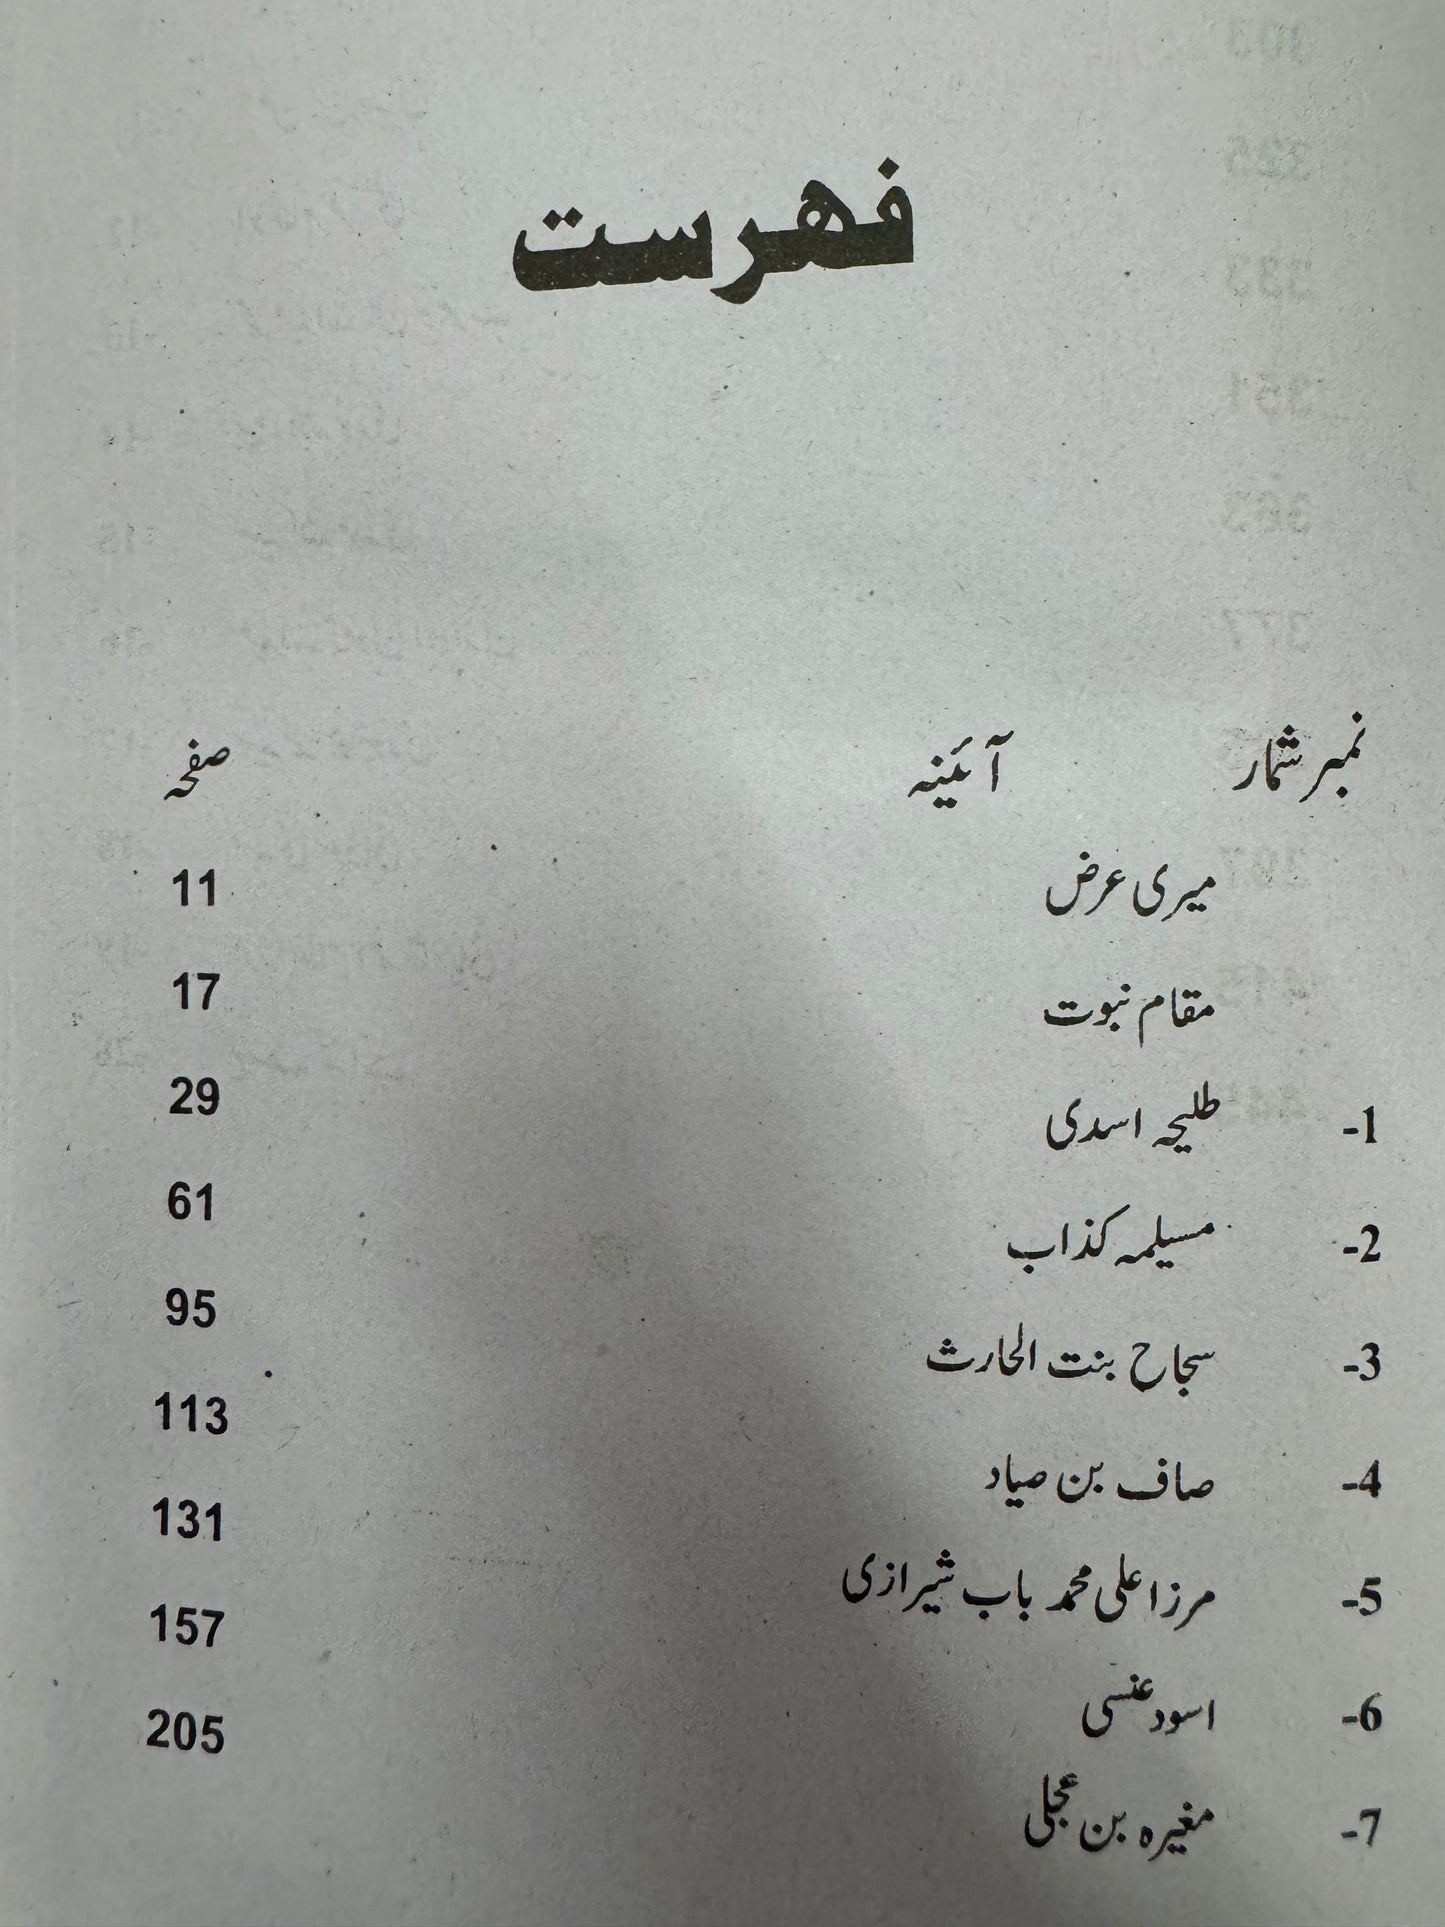 فہرست
نمبر شمار آئینہ صفحہ
میری عرض 11
مقام نبوت 17
1- طلیحہ اسدی 29
2- مسیلمہ کذاب 61
3- سجاح بنت الحارث 95
4- صاف بن صیاد 113
5- مرزا علی محمد باب شیرازی 131
6- اسود عنسی 157
7- مغیرہ بن عجلی 205